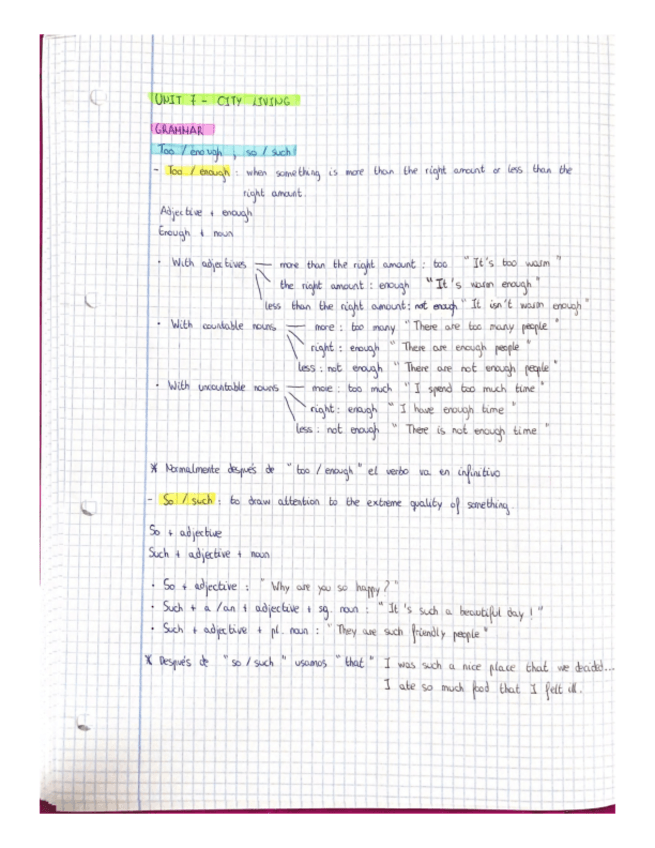 UNIT 7 - CITY LIVING
GRAMMAR
Too / enough , so / such
- Too / enough : when something is more than the right amount or less than the
right amount.
Adjective + enough
Enough + noun
· With adjectives — more than the right amount : too "It's too warm"
the right amount : enough "It's warm enough"
less than the right amount : not enough "It isn't warm enough"
· With countable nouns — more : too many "There are too many people"
right : enough "There are enough people"
less : not enough "There are not enough people"
· With uncountable nouns — more : too much "I spend too much time"
right : enough "I have enough time"
less : not enough "There is not enough time"
* Normalmente después de "too / enough" el verbo va en infinitivo
- So / such : to draw attention to the extreme quality of something.
So + adjective
Such + adjective + noun
· So + adjective : "Why are you so happy?"
· Such + a /an + adjective + sg. noun : "It's such a beautiful day !"
· Such + adjective + pl. noun : "They are such friendly people"
* Después de "so / such" usamos "that" I was such a nice place that we decided...
I ate so much food that I felt ill.